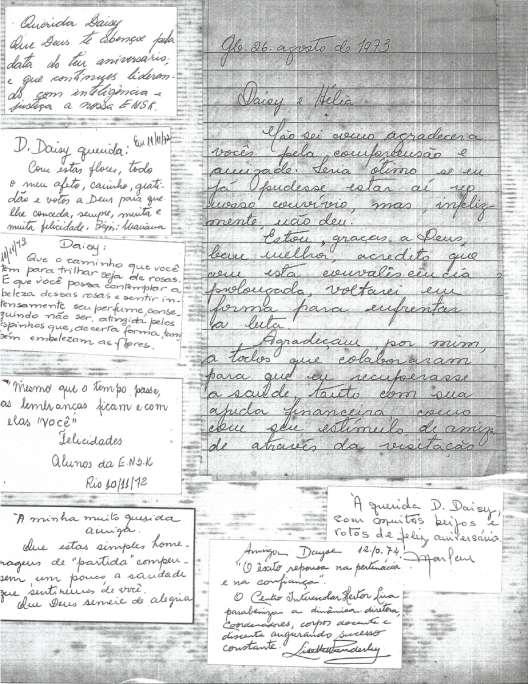 Querida Daisy
Que Deus te abençoe pela
data do teu aniversário;
e que continues lideran-
do, com inteligência e
justiça a nossa E.N.S.K.
Em 11/11/72
D. Daisy querida:
Com estas flores, todo
o meu afeto, carinho, grati-
dão e votos a Deus para que
lhe conceda, sempre, muita e
muita felicidade. Mariana
Daisy:
Que o caminho que você
tem para trilhar seja de rosas.
E que você possa contemplar a
beleza dessas rosas e sentir in-
tensamente seu perfume, conse-
guindo não ser atingida pelos
espinhos que, de certa forma, tam
bém embelezam as flores.
"Mesmo que o tempo passe,
as lembranças ficam e com
elas "você"
Felicidades
Alunos da E.N.S.K
Rio 10/11/72
"A minha muito querida
amiga.
Que estas simples home-
nagens de "partida" compen-
sem um pouco a saudade
que sentiremos de você.
Que Deus semeie de alegria
26. agosto de 1973
Daisy e Hélia
Não sei como agradecer a
vocês pela compreensão e
amizade. Seria ótimo se eu
já pudesse estar aí no
nosso convívio, mas, infeliz-
mente, não deu.
Estou, graças a Deus,
bem melhor, acredito que
com esta convalescência
prolongada, voltarei em
forma para enfrentar
a luta.
Agradeçam por mim,
a todos que colaboraram
para que eu recuperasse
a saúde tanto com sua
ajuda financeira como
com seu estímulo de amiza
de através da visitação
À querida D. Daisy,
com muitos beijos e
votos de feliz aniversário.
Marlene
Amiga Dayse
"O êxito repousa na
e na confiança".
O Centro
parabeniza a dinâmica diretora,
coordenadores, corpos docente e
discente augurando sucesso
constante.